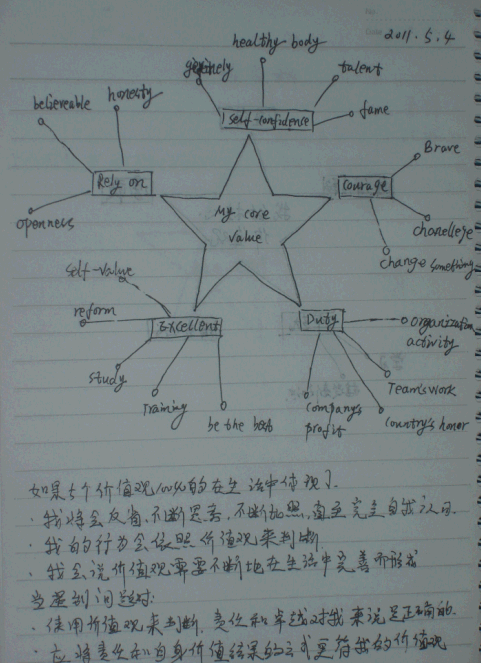 2011.5.4
healthy body
talent
fame
self-confidence
believeable
honesty
openness
Rely on
My core
value
Courage
Brave
chanellege
change something
self-value
reform
study
Training
be the best
Excellent
Duty
organization
activity
Team's work
Country's honor
Company's
profit
如果5个价值观100%的在生活中体现了
·我将会反省、不断思考、不断加照,直至完全自我认同
·我的行为会依照价值观来判断
·我会说价值观需要不断地在生活中完善而形成
当遇到问题时:
·使用价值观来判断,责任和卓越对我来说是正确的
·应将责任和自身价值结果的方式更符我的价值观